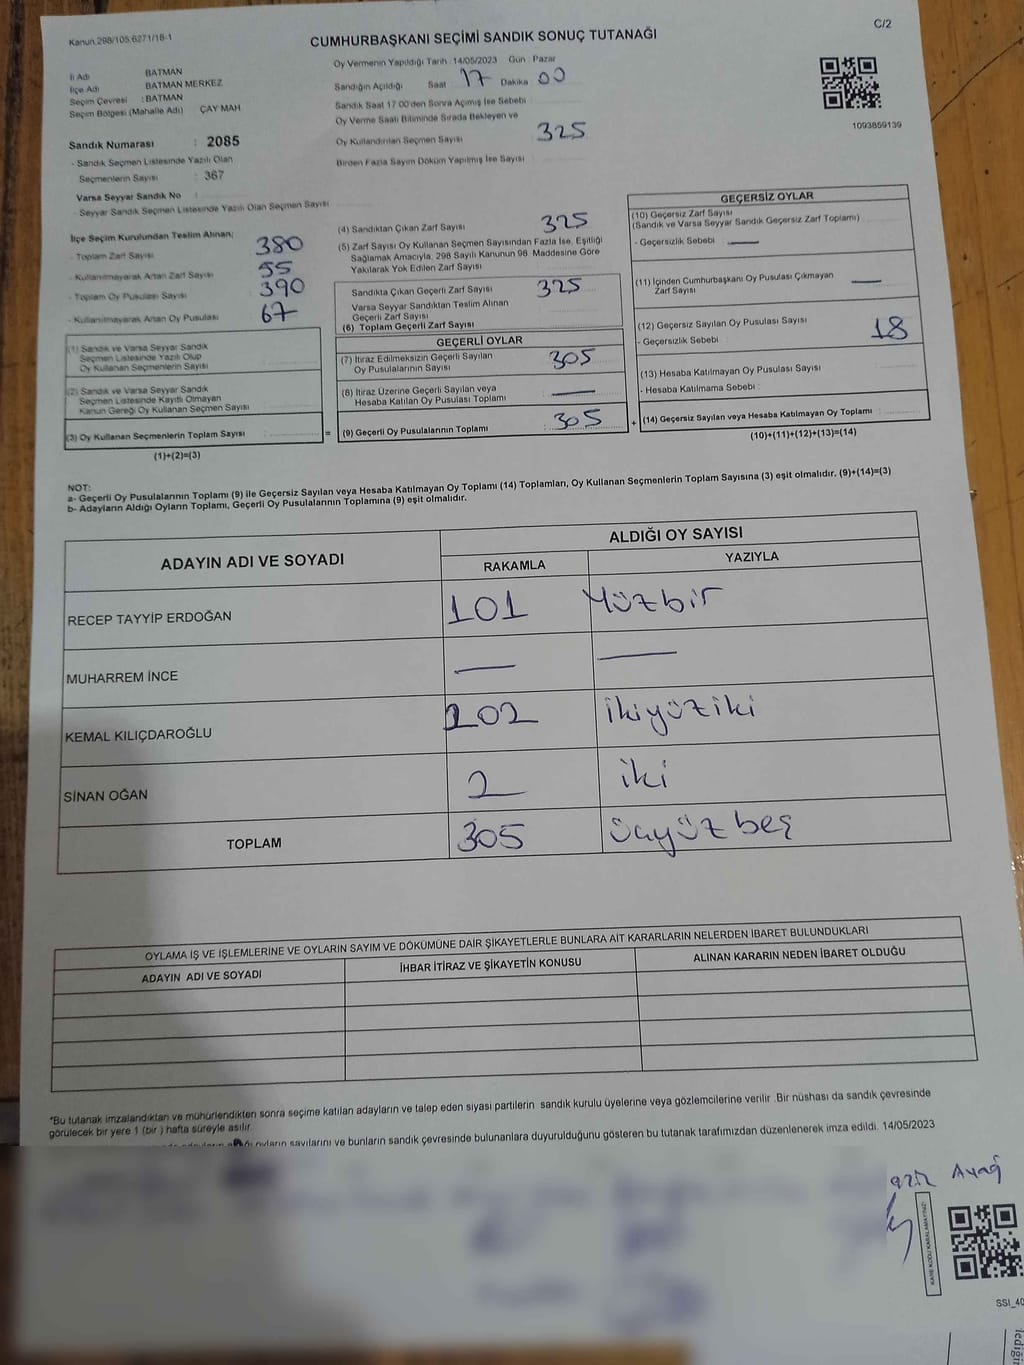 Kanun.298/105,6271/18-1
C/2
CUMHURBAŞKANI SEÇİMİ SANDIK SONUÇ TUTANAĞI
İl Adı BATMAN
İlçe Adı BATMAN MERKEZ
Seçim Çevresi : BATMAN
Seçim Bölgesi (Mahalle Adı) ÇAY MAH
Sandık Numarası : 2085
- Sandık Seçmen Listesinde Yazılı Olan
Seçmenlerin Sayısı : 367
Varsa Seyyar Sandık No :
- Seyyar Sandık Seçmen Listesinde Yazılı Olan Seçmen Sayısı
Oy Vermenin Yapıldığı Tarih : 14/05/2023 Gün : Pazar
Sandığın Açıldığı Saat 17 Dakika 00
Sandık Saat 17:00'den Sonra Açımış İse Sebebi :
Oy Verme Saati Bitiminde Sırada Bekleyen ve
Oy Kullandırılan Seçmen Sayısı 325
Birden Fazla Sayım Döküm Yapılmış İse Sayısı :
1093859139
İlçe Seçim Kurulundan Teslim Alınan;
- Toplam Zarf Sayısı 380
- Kullanılmayarak Artan Zarf Sayısı 55
- Toplam Oy Pusulası Sayısı 390
- Kullanılmayarak Artan Oy Pusulası 67
(1) Sandık ve Varsa Seyyar Sandık
Seçmen Listesinde Yazılı Olup
Oy Kullanan Seçmenlerin Sayısı
(2) Sandık ve Varsa Seyyar Sandık
Seçmen Listesinde Kayıtlı Olmayan
Kanun Gereği Oy Kullanan Seçmen Sayısı
(3) Oy Kullanan Seçmenlerin Toplam Sayısı :
(1)+(2)=(3)
=
(4) Sandıktan Çıkan Zarf Sayısı 325
(5) Zarf Sayısı Oy Kullanan Seçmen Sayısından Fazla İse, Eşitliği
Sağlamak Amacıyla, 298 Sayılı Kanunun 98. Maddesine Göre
Yakılarak Yok Edilen Zarf Sayısı
Sandıkta Çıkan Geçerli Zarf Sayısı 325
Varsa Seyyar Sandıktan Teslim Alınan
Geçerli Zarf Sayısı
(6) Toplam Geçerli Zarf Sayısı
GEÇERLİ OYLAR
(7) İtiraz Edilmeksizin Geçerli Sayılan
Oy Pusulalarının Sayısı 305
(8) İtiraz Üzerine Geçerli Sayılan veya
Hesaba Katılan Oy Pusulası Toplamı —
(9) Geçerli Oy Pusulalarının Toplamı : 305
+
GEÇERSİZ OYLAR
(10) Geçersiz Zarf Sayısı
(Sandık ve Varsa Seyyar Sandık Geçersiz Zarf Toplamı)
- Geçersizlik Sebebi : —
(11) İçinden Cumhurbaşkanı Oy Pusulası Çıkmayan
Zarf Sayısı —
(12) Geçersiz Sayılan Oy Pusulası Sayısı 18
- Geçersizlik Sebebi :
(13) Hesaba Katılmayan Oy Pusulası Sayısı
- Hesaba Katılmama Sebebi :
(14) Geçersiz Sayılan veya Hesaba Katılmayan Oy Toplamı :
(10)+(11)+(12)+(13)=(14)
NOT:
a- Geçerli Oy Pusulalarının Toplamı (9) ile Geçersiz Sayılan veya Hesaba Katılmayan Oy Toplamı (14) Toplamları, Oy Kullanan Seçmenlerin Toplam Sayısına (3) eşit olmalıdır. (9)+(14)=(3)
b- Adayların Aldığı Oyların Toplamı, Geçerli Oy Pusulalarının Toplamına (9) eşit olmalıdır.
ADAYIN ADI VE SOYADI ALDIĞI OY SAYISI
RAKAMLA YAZIYLA
RECEP TAYYİP ERDOĞAN 101 Yüzbir
MUHARREM İNCE — —
KEMAL KILIÇDAROĞLU 202 ikiyüziki
SİNAN OĞAN 2 iki
TOPLAM 305 üçyüzbeş
OYLAMA İŞ VE İŞLEMLERİNE VE OYLARIN SAYIM VE DÖKÜMÜNE DAİR ŞİKAYETLERLE BUNLARA AİT KARARLARIN NELERDEN İBARET BULUNDUKLARI
ADAYIN ADI VE SOYADI İHBAR İTİRAZ VE ŞİKAYETİN KONUSU ALINAN KARARIN NEDEN İBARET OLDUĞU
*Bu tutanak imzalandıktan ve mühürlendikten sonra seçime katılan adayların ve talep eden siyasi partilerin sandık kurulu üyelerine veya gözlemcilerine verilir .Bir nüshası da sandık çevresinde
görülecek bir yere 1 (bir ) hafta süreyle asılır.
oyların sayılarını ve bunların sandık çevresinde bulunanlara duyurulduğunu gösteren bu tutanak tarafımızdan düzenlenerek imza edildi. 14/05/2023
KARE KODU KARALAMAYINIZ!
SSI_40